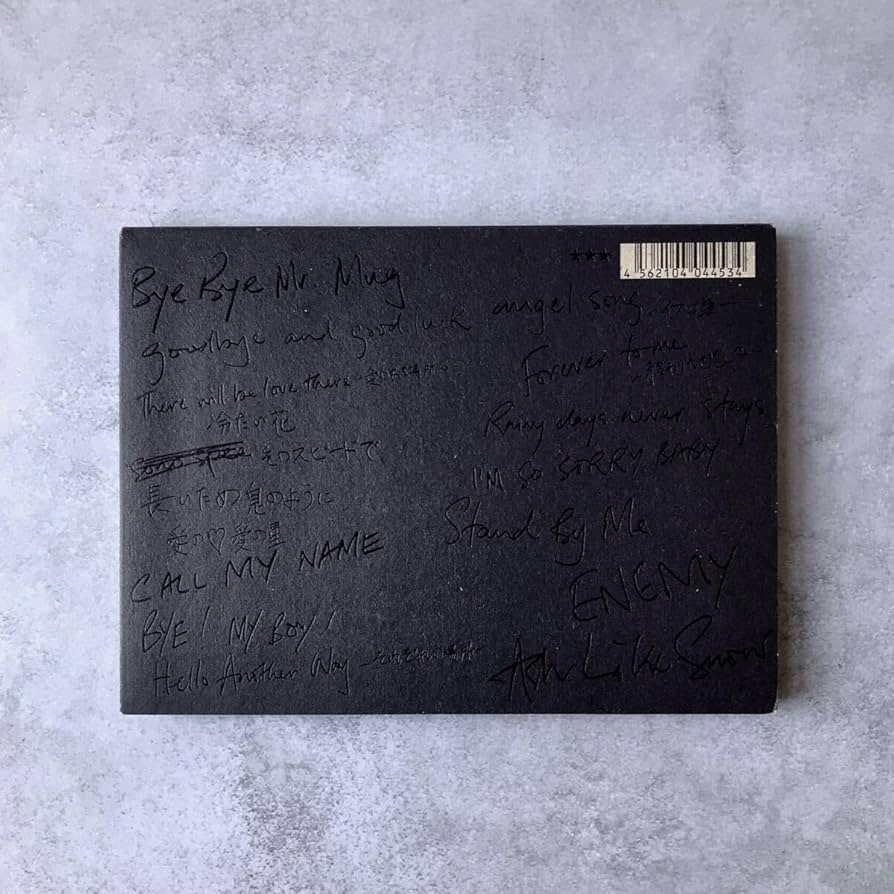 ★★★
4 562104 044534
Bye Bye Mr. Mug
goodbye and good luck
There will be love there -愛のある場所-
冷たい花
そのスピードで
長いため息のように
愛の♡愛の星
CALL MY NAME
BYE! MY BOY!
Hello Another Way -それぞれの場所-
angel song
Forever to me
Rainy days never stays
I'M SO SORRY BABY
Stand By Me
ENEMY
Ash Like Snow